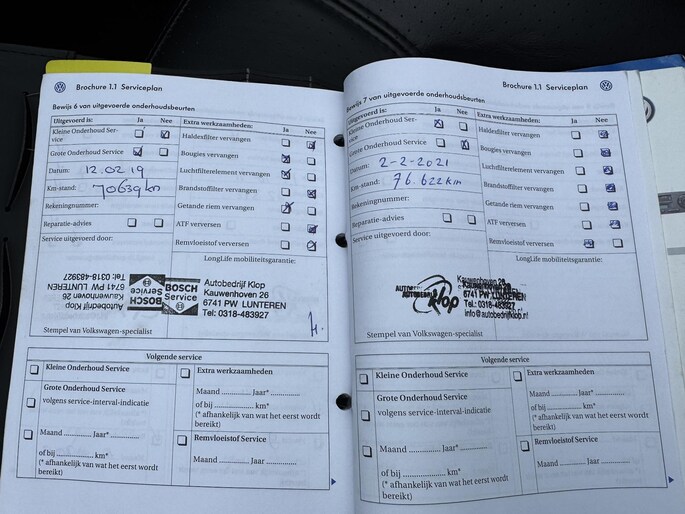 Brochure 1.1 Serviceplan
Bewijs 6 van uitgevoerde onderhoudsbeurten
Uitgevoerd is: Ja Nee
Kleine Onderhoud Ser-
vice
Grote Onderhoud Service
Datum: 12.02.19
Km-stand: 70639 km
Rekeningnummer:
Reparatie-advies
Service uitgevoerd door:
Extra werkzaamheden: Ja Nee
Haldexfilter vervangen
Bougies vervangen
Luchtfilterelement vervangen
Brandstoffilter vervangen
Getande riem vervangen
ATF verversen
Remvloeistof verversen
LongLife mobiliteitsgarantie:
Autobedrijf Klop
Kauwenhoven 26
6741 PW LUNTEREN
Tel: 0318-483927
BOSCH
Service
BOSCH
Service
Autobedrijf Klop
Kauwenhoven 26
6741 PW LUNTEREN
Tel.: 0318-483927
Stempel van Volkswagen-specialist
Volgende service
Kleine Onderhoud Service
Grote Onderhoud Service
volgens service-interval-indicatie
Maand .............. Jaar* ..............
of bij .................. km*
(* afhankelijk van wat het eerst wordt
bereikt)
Extra werkzaamheden
Maand ............ Jaar* ............
of bij .................. km*
(* afhankelijk van wat het eerst wordt
bereikt)
Remvloeistof Service
Maand ............ Jaar ............
Brochure 1.1 Serviceplan
Bewijs 7 van uitgevoerde onderhoudsbeurten
Uitgevoerd is: Ja Nee
Kleine Onderhoud Ser-
vice
Grote Onderhoud Service
Datum: 2-2-2021
Km-stand: 76.622 km
Rekeningnummer:
Reparatie-advies
Service uitgevoerd door:
Extra werkzaamheden: Ja Nee
Haldexfilter vervangen
Bougies vervangen
Luchtfilterelement vervangen
Brandstoffilter vervangen
Getande riem vervangen
ATF verversen
Remvloeistof verversen
LongLife mobiliteitsgarantie:
AUTOBEDRIJF
Klop
Kauwenhoven 26
6741 PW LUNTEREN
Tel. 0318-483927
info@autobedrijfklop.nl
Stempel van Volkswagen-specialist
Volgende service
Kleine Onderhoud Service
Grote Onderhoud Service
volgens service-interval-indicatie
Maand .............. Jaar* ..............
of bij .................. km*
(* afhankelijk van wat het eerst wordt
bereikt)
Extra werkzaamheden
Maand ............ Jaar* ............
of bij .................. km*
(* afhankelijk van wat het eerst wordt
bereikt)
Remvloeistof Service
Maand ............ Jaar ............